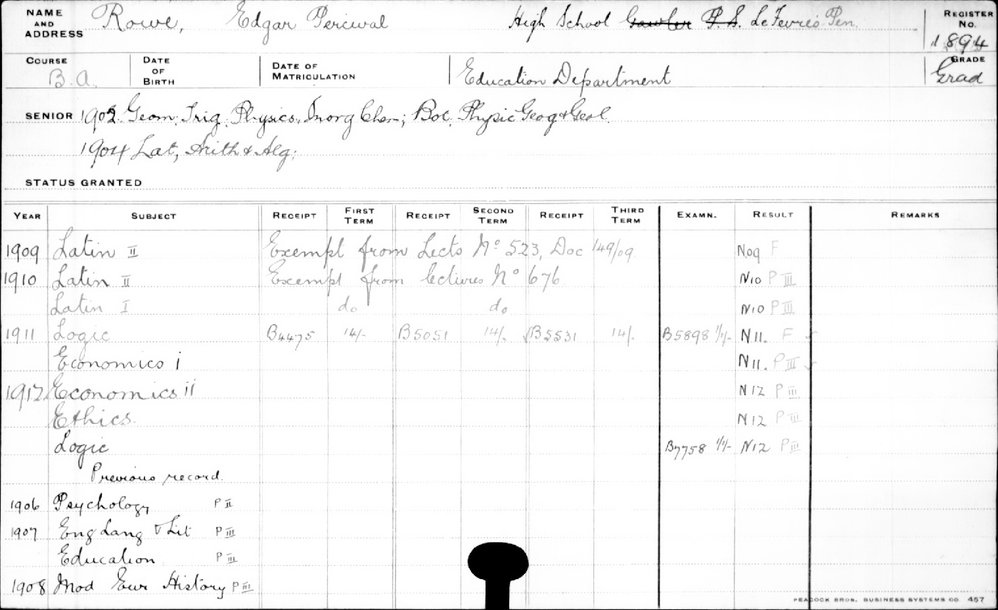 NAME AND ADDRESS Rowe, Edgar Percival High School Gawler P.S. LeFevre's Pen. REGISTER No. 1894
COURSE B.A. DATE OF BIRTH DATE OF MATRICULATION Education Department GRADE Grad
SENIOR 1902 Geom, Trig, Physics, Inorg Chem; Bot, Physic Geog & Geol.
1904 Lat, Arith & Alg:
STATUS GRANTED
YEAR SUBJECT RECEIPT FIRST TERM RECEIPT SECOND TERM RECEIPT THIRD TERM EXAMN. RESULT REMARKS
1909 Latin II Exempt from Lects No 523, Doc 149/09 N09 F
1910 Latin II Exempt from lectures No 676 N10 P III
Latin I do do N10 P III
1911 Logic B4475 14/- B5051 14/- B5531 14/- B5898 N11. F
Economics I N11. P III
1912 Economics II N12 P III
Ethics. N12 P III
Logic B7758 N12 P III
Previous record.
1906 Psychology P II
1907 Eng Lang & Lit P III
Education P III
1908 Mod Eur History P III
PEACOCK BROS. BUSINESS SYSTEMS CO. 457